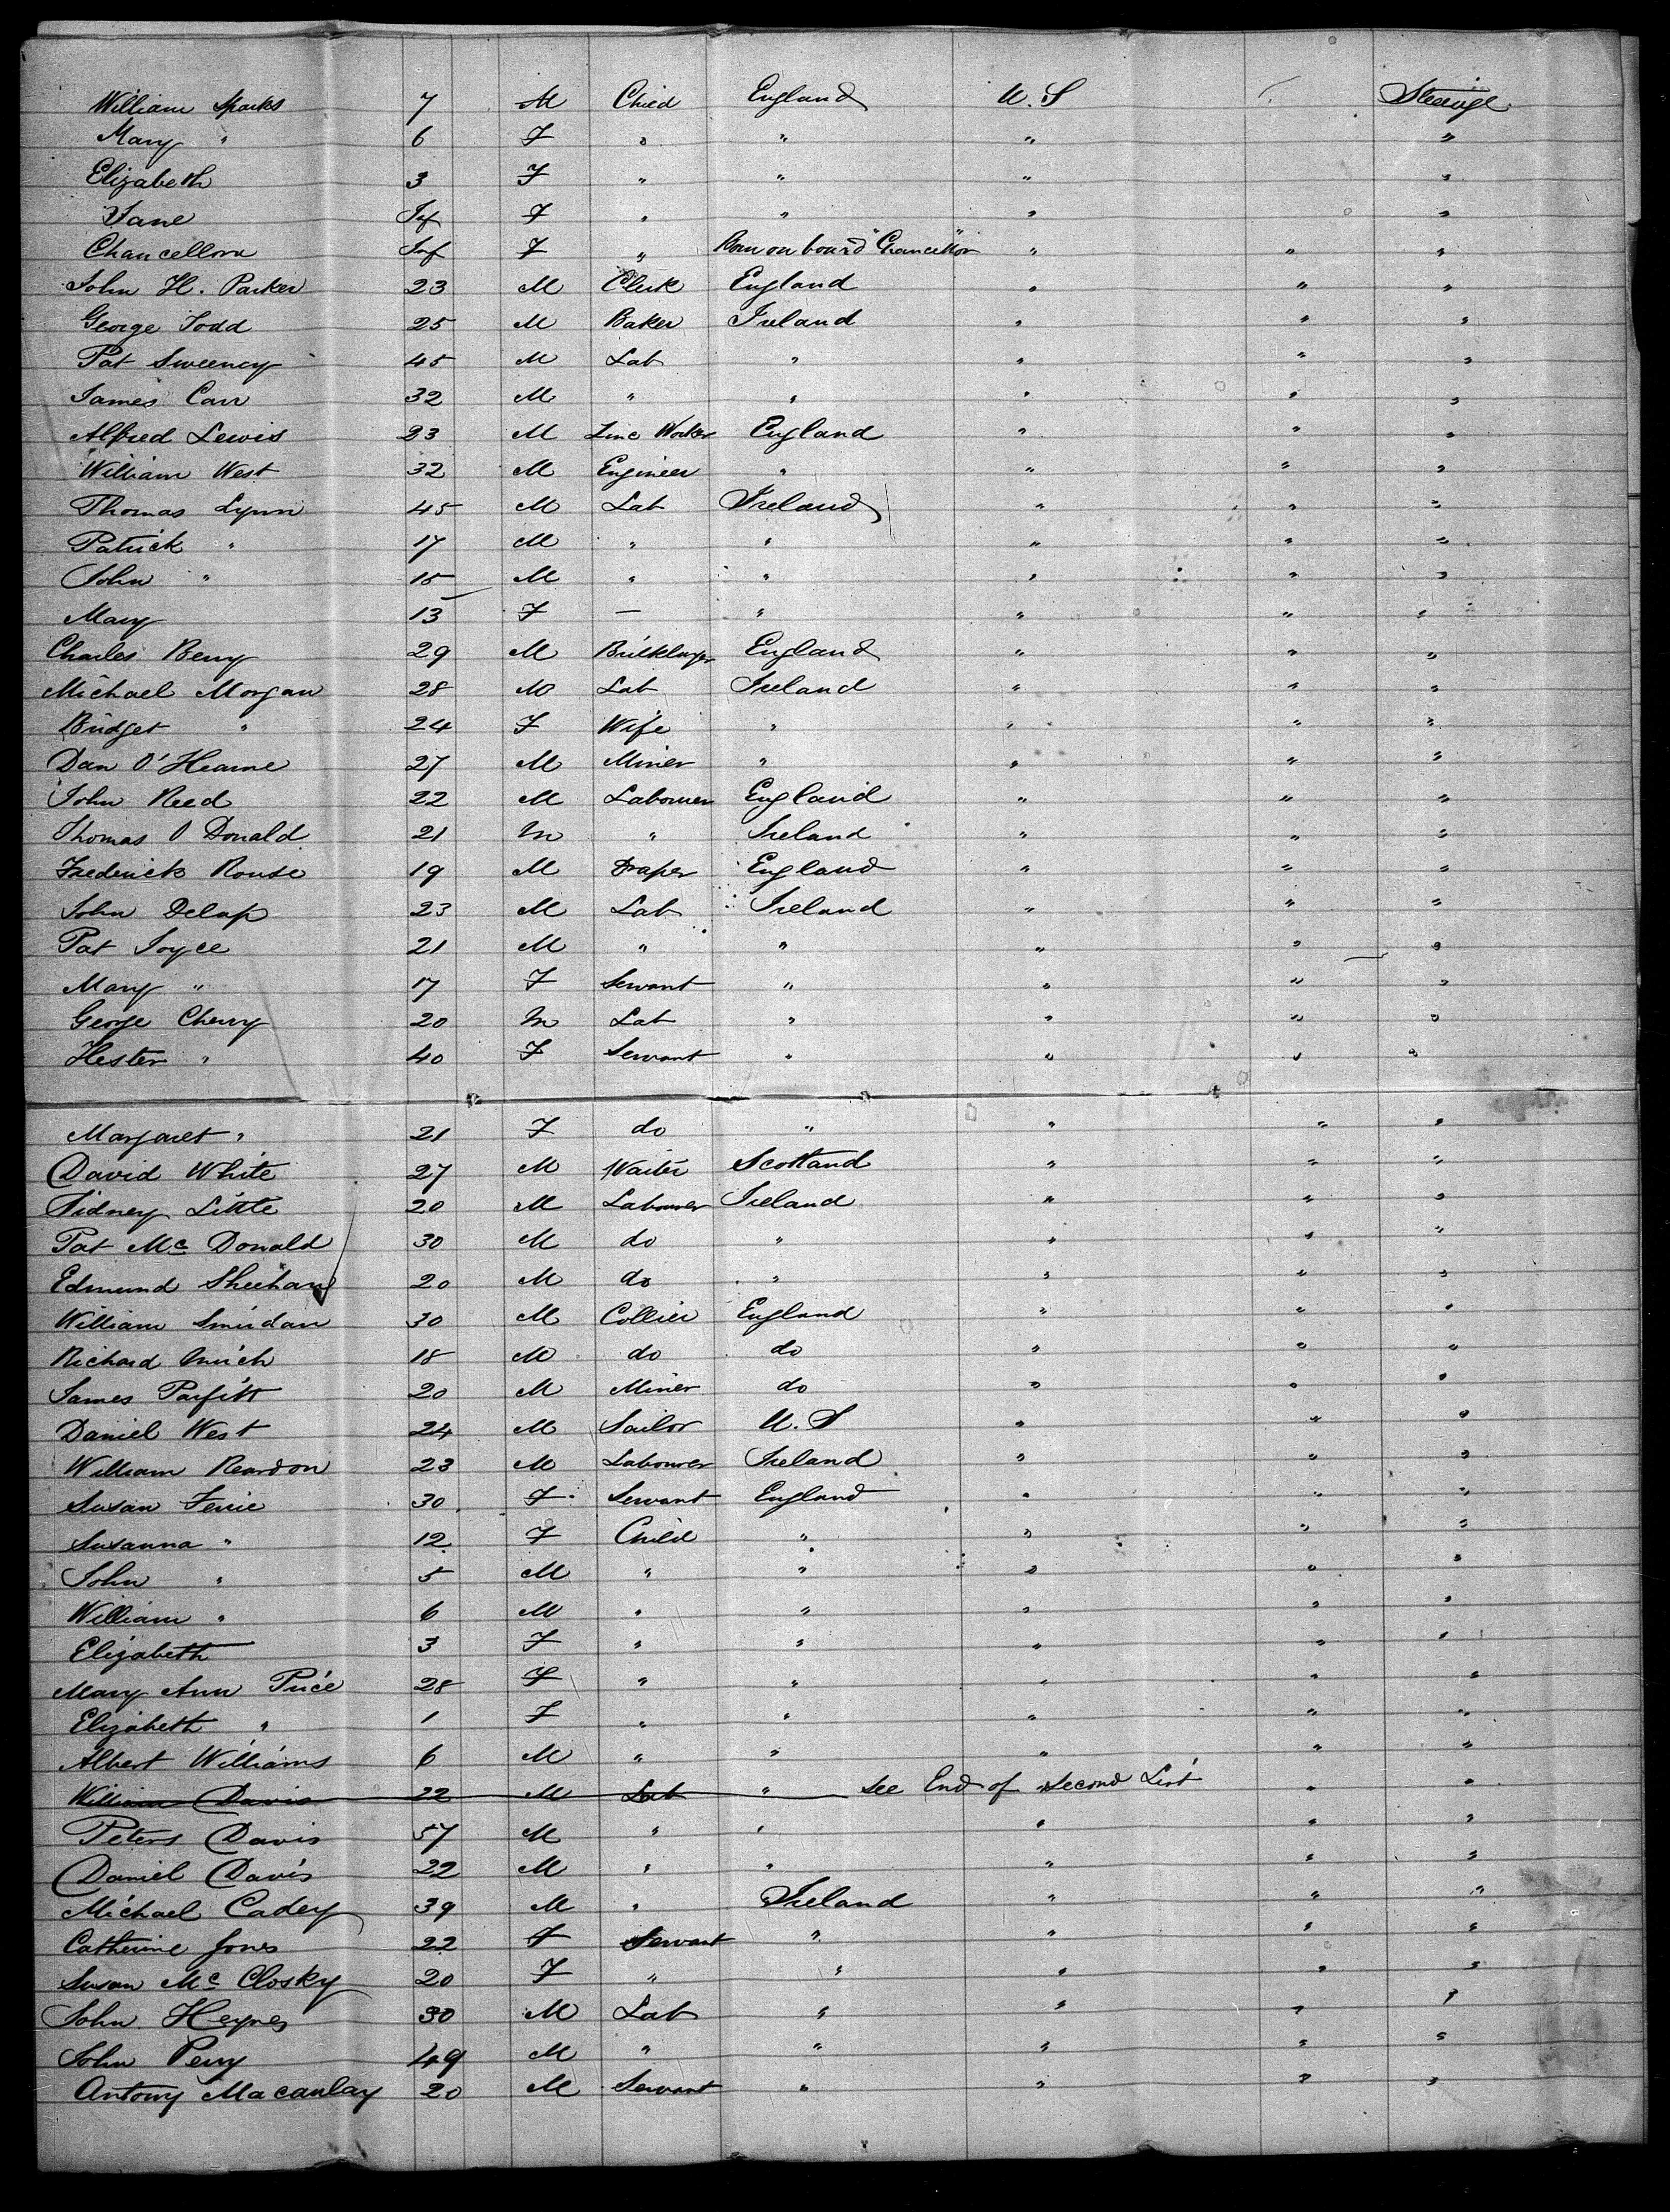 William Sparks 7 M Child England U.S Steerage
Mary " 6 F " " " "
Elizabeth 3 F " " " "
Jane Inf F " " " "
Chancellora Inf F " Born on board "Chancellor" " " "
John H. Parker 23 M Clerk England " " "
George Todd 25 M Baker Ireland " " "
Pat Sweeney 45 M Lab " " " "
James Carr 32 M " " " " "
Alfred Lewis 23 M Zinc Worker England " " "
William West 32 M Engineer " " " "
Thomas Lynn 45 M Lab Ireland " " "
Patrick " 17 M " " " " "
John " 15 M " " " " "
Mary 13 F — " " " "
Charles Berry 29 M Bricklayer England " " "
Michael Morgan 28 M Lab Ireland " " "
Bridget " 24 F Wife " " " "
Dan O'Hearne 27 M Miner " " " "
John Reed 22 M Labourer England " " "
Thomas O Donald 21 M " Ireland " " "
Frederick Rouse 19 M Draper England " " "
John Delap 23 M Lab Ireland " " "
Pat Joyce 21 M " " " " "
Mary " 17 F Servant " " " "
George Cherry 20 M Lab " " " "
Hester " 40 F Servant " " " "
Margaret " 21 F do " " " "
David White 27 M Waiter Scotland " " "
Sidney Little 20 M Labourer Ireland " " "
Pat Mc Donald 30 M do " " " "
Edmund Sheehan 20 M do " " " "
William 30 M Collier England " " "
Richard 18 M do do " " "
James Parfitt 20 M Miner do " " "
Daniel West 24 M Sailor U.S " " "
William Reardon 23 M Labourer Ireland " " "
Susan Ferrie 30 F Servant England " " "
Susanna " 12 F Child " " " "
John " 5 M " " " " "
William " 6 M " " " " "
Elizabeth 3 F " " " " "
Mary Ann Price 28 F " " " " "
Elizabeth " 1 F " " " " "
Albert Williams 6 M " " " " "
William Davis 22 M Lab " see End of Second List " "
Peters Davis 57 M " " " " "
Daniel Davis 22 M " " " " "
Michael Cadey 39 M " Ireland " " "
Catherine Jones 22 F Servant " " " "
Susan Mc Closky 20 F " " " " "
John Heynes 30 M Lab " " " "
John Perry 49 M " " " " "
Antony Macaulay 20 M Servant " " " "